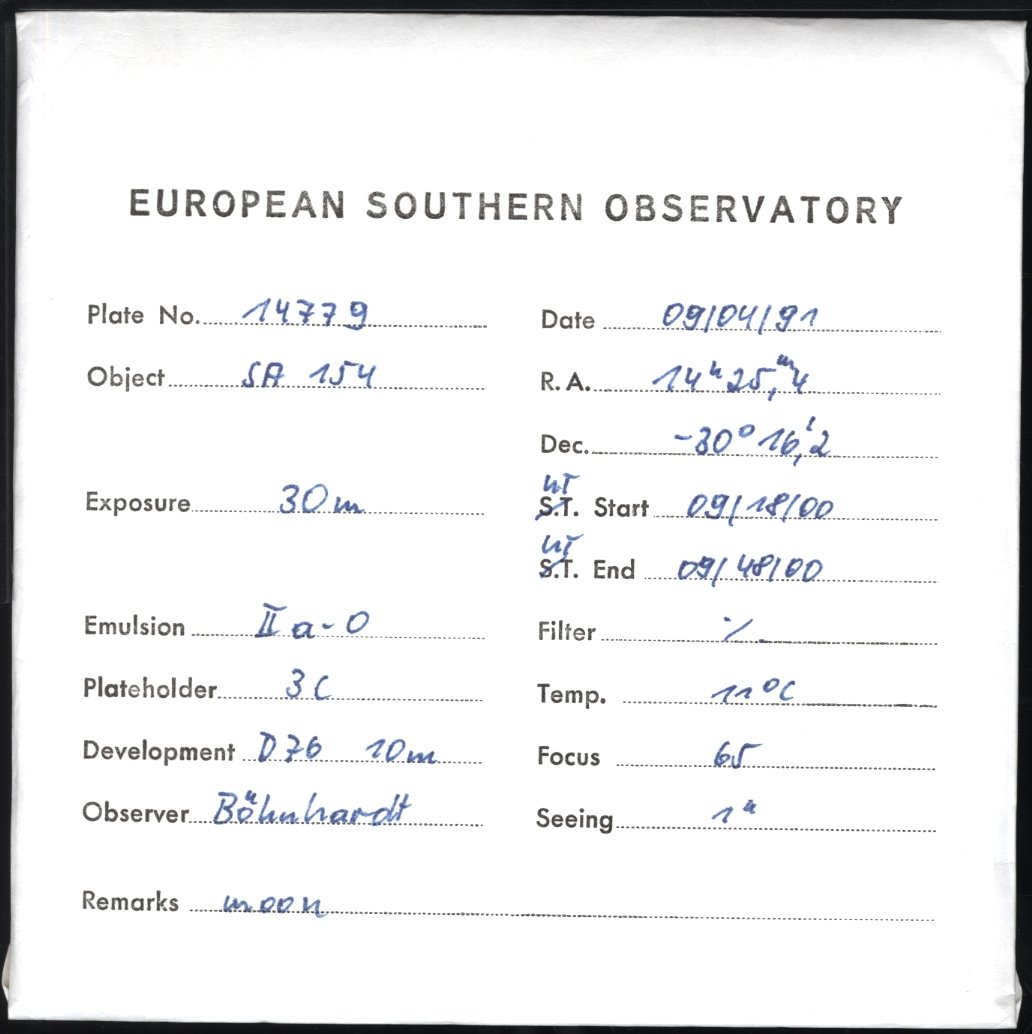 EUROPEAN SOUTHERN OBSERVATORY
Plate No. 14779 Date 09/04/91
Object SA 154 R.A. 14h 25,m4
Dec. -30° 16,'2
UT
Exposure 30m S.T. Start 09/18/00
UT
S.T. End 09/48/00
Emulsion II a-O Filter ·/.
Plateholder 3C Temp. 11°C
Development D76 10m Focus 65
Observer Böhnhardt Seeing 1"
Remarks moon